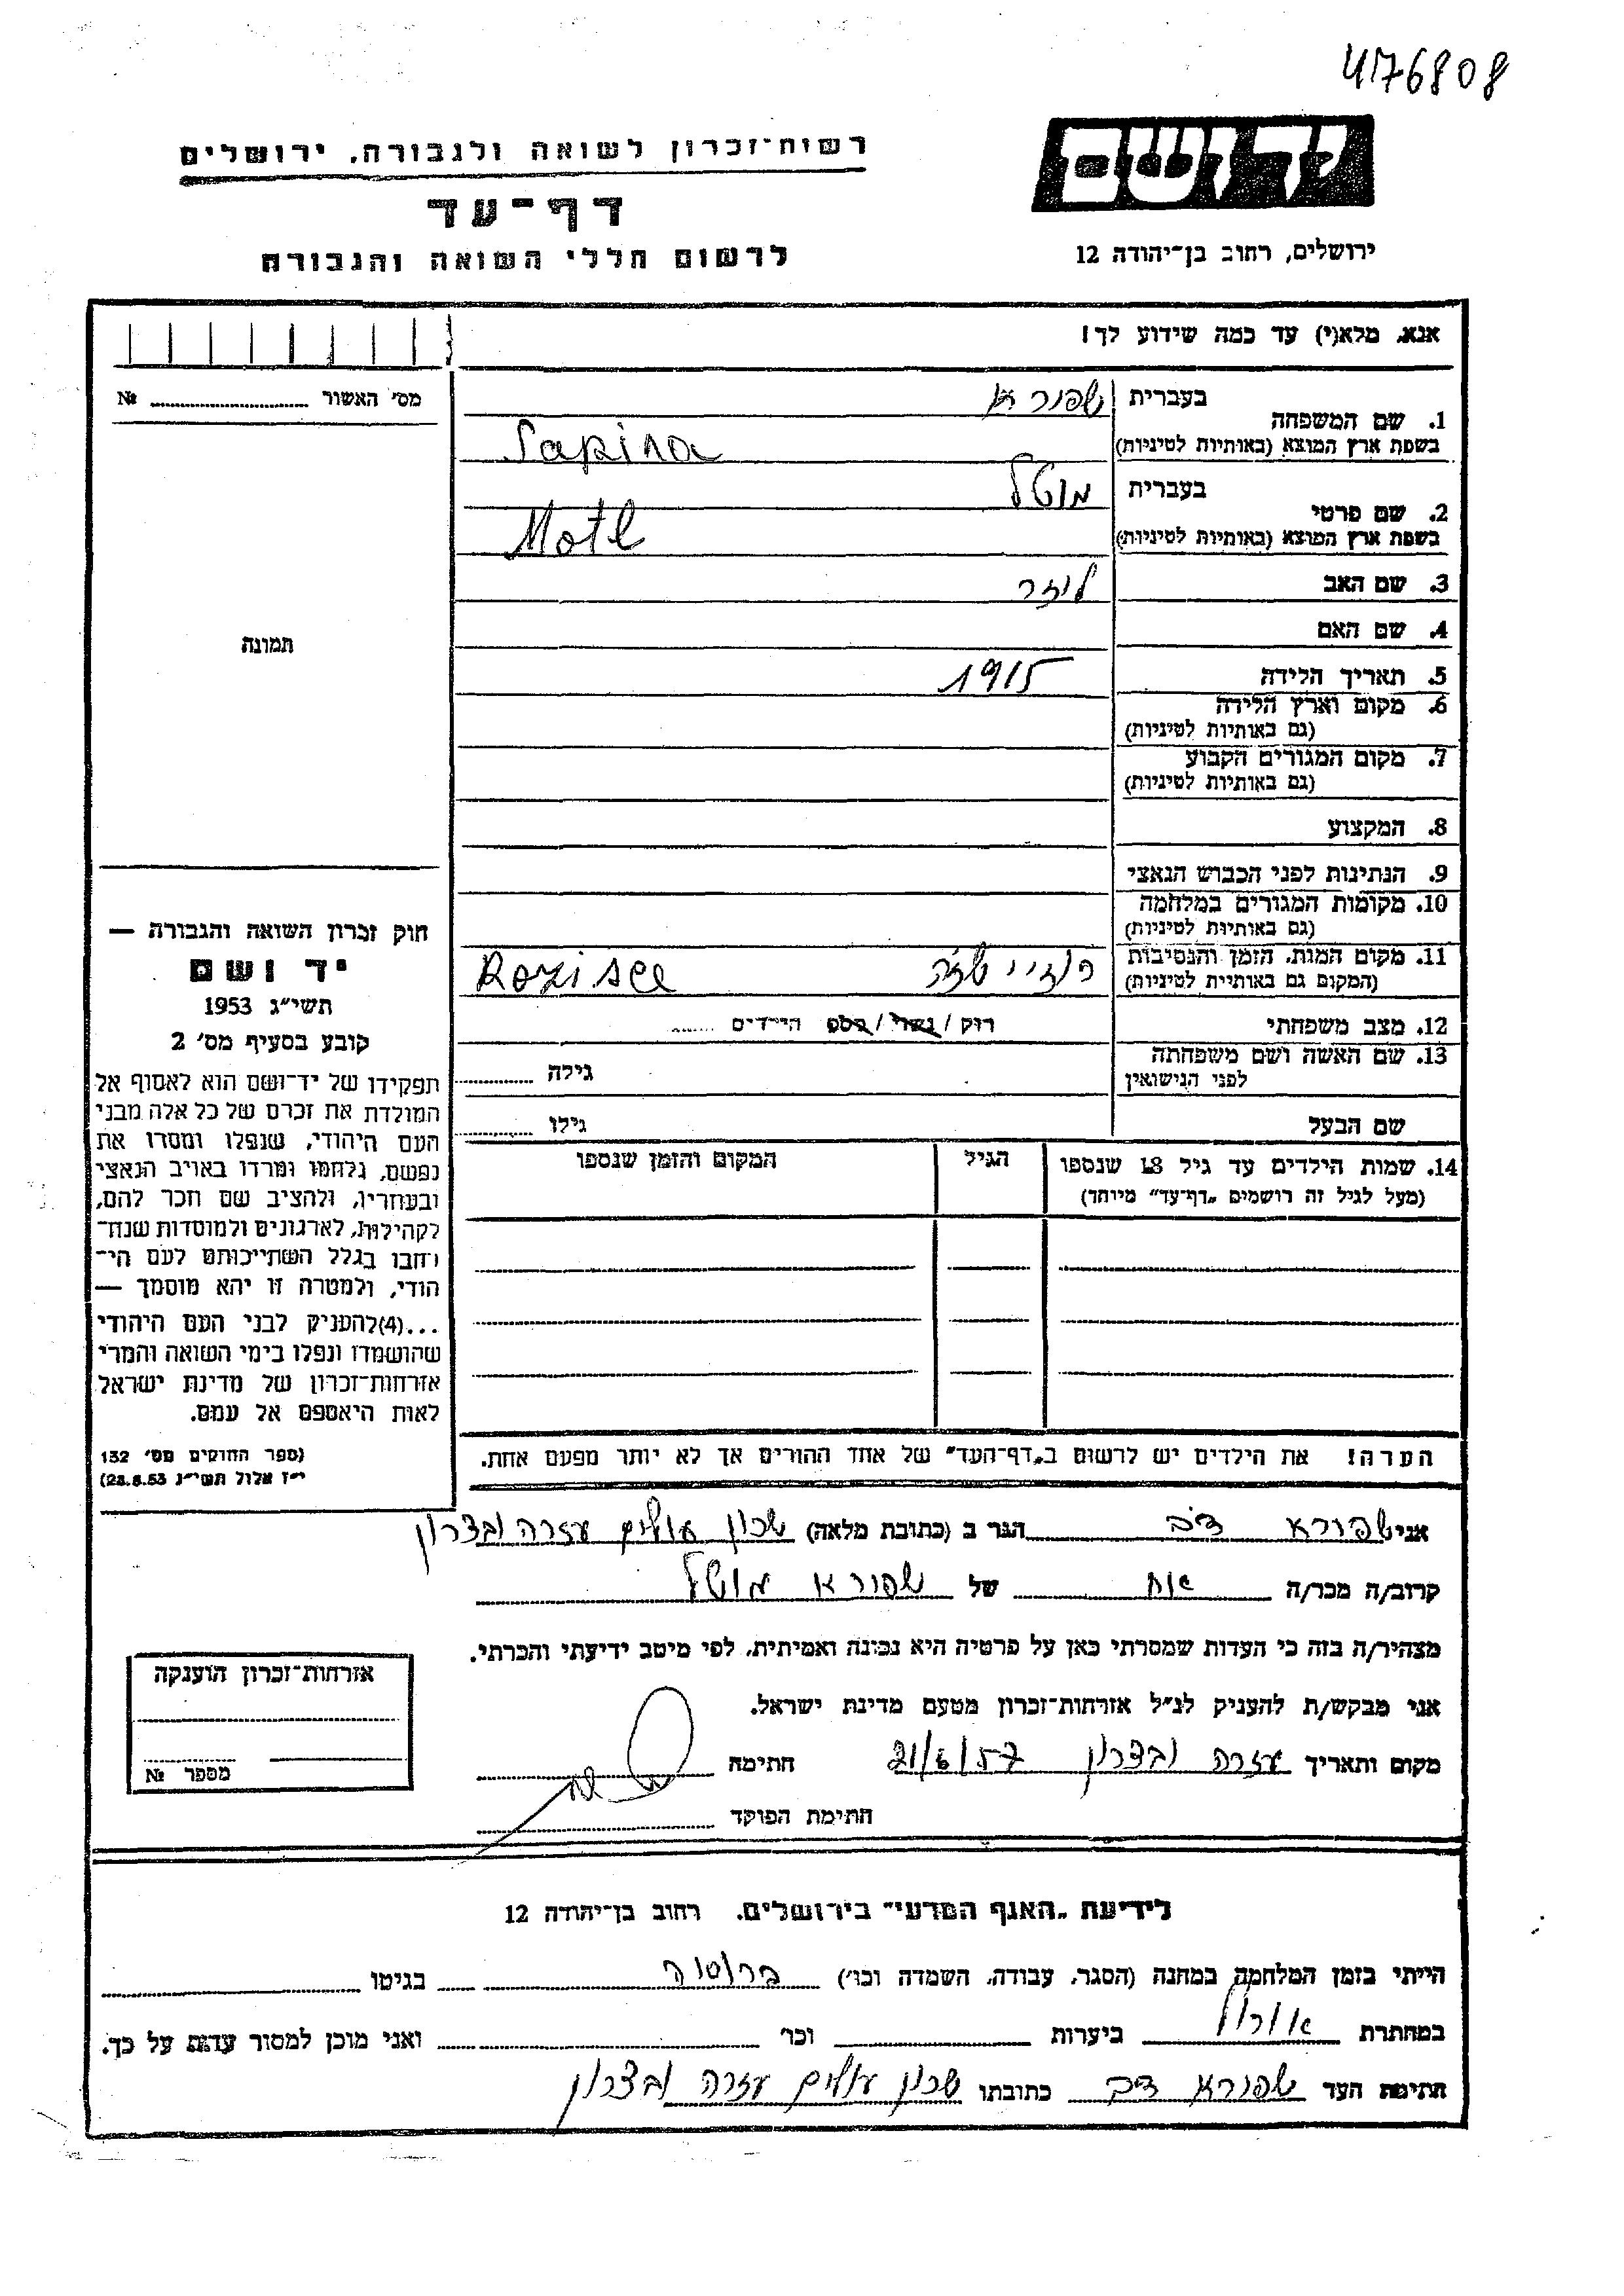 4176808
יד ושם
רשות־זכרון לשואה ולגבורה, ירושלים
דף־עד
לרשום חללי השואה והגבורה
ירושלים, רחוב בן־יהודה 12
אנא, מלא(י) עד כמה שידוע לך!
מס׳ האשור № 
1. שם המשפחה
בעברית שפורא
בשפת ארץ המוצא (באותיות לטיניות)
2. שם פרטי
בעברית מוטל
בשפת ארץ המוצא (באותיות לטיניות) Motl
3. שם האב לוזר
4. שם האם
5. תאריך הלידה 1915
6. מקום וארץ הלידה
(גם באותיות לטיניות)
7. מקום המגורים הקבוע
(גם באותיות לטיניות)
8. המקצוע
9. הנתינות לפני הכבוש הנאצי
10. מקומות המגורים במלחמה
(גם באותיות לטיניות)
11. מקום המות, הזמן והנסיבות
(המקום גם באותיות לטיניות)
12. מצב משפחתי רווק / נשוי / מספר הילדים
13. שם האשה ושם משפחתה
לפני הנישואין
גילה
שם הבעל גילו
תמונה
חוק זכרון השואה והגבורה —
יד ושם
תשי״ג 1953
קובע בסעיף מס׳ 2
תפקידו של יד־ושם הוא לאסוף אל
המולדת את זכרם של כל אלה מבני
העם היהודי, שנפלו ומסרו את
נפשם, נלחמו ומרדו באויב הנאצי
ובעוזריו, ולהציב שם וזכר להם,
לקהילות, לארגונים ולמוסדות שנח־
רבו בגלל השתייכותם לעם הי־
הודי, ולמטרה זו יהא מוסמך —
...(4) להעניק לבני העם היהודי
שהושמדו ונפלו בימי השואה והמרי
אזרחות־זכרון של מדינת ישראל
לאות היאספם אל עמם.
(ספר החוקים מס׳ 132
י״ז אלול תשי״ג 28.8.53)
14. שמות הילדים עד גיל 18 שנספו הגיל המקום והזמן שנספו
(מעל לגיל זה רושמים „דף־עד״ מיוחד)
הערה! את הילדים יש לרשום ב„דף־העד״ של אחד ההורים אך לא יותר מפעם אחת.
אני שפורא דב הגר ב (כתובת מלאה) שכון עולים עזרה ובצרון
קרוב/ה מכר/ה אח של שפורא מוטל
מצהיר/ה בזה כי העדות שמסרתי כאן על פרטיה היא נכונה ואמיתית, לפי מיטב ידיעתי והכרתי.
אני מבקש/ת להעניק לנ״ל אזרחות־זכרון מטעם מדינת ישראל.
מקום ותאריך עזרה ובצרון 21/6/57 חתימה
חתימת הפוקד
אזרחות־זכרון הוענקה
מספר №
לידיעת „האגף המדעי״ בירושלים, רחוב בן־יהודה 12
הייתי בזמן המלחמה במחנה (הסגר, עבודה, השמדה וכו׳) בגיטו
במחתרת ביערות וכו׳ ואני מוכן למסור עדות על כך.
חתימת העד שפורא דב כתובתו שכון עולים עזרה ובצרון